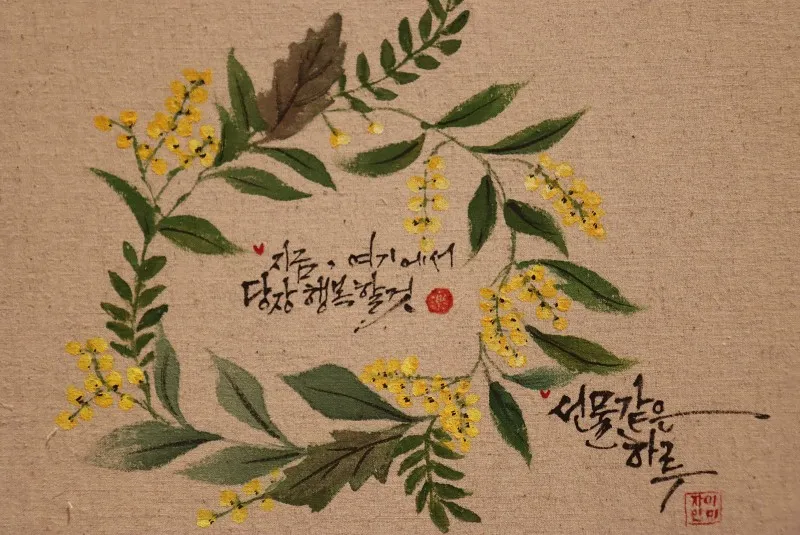 지금, 여기에서
당장 행복할 것
선물같은
하루